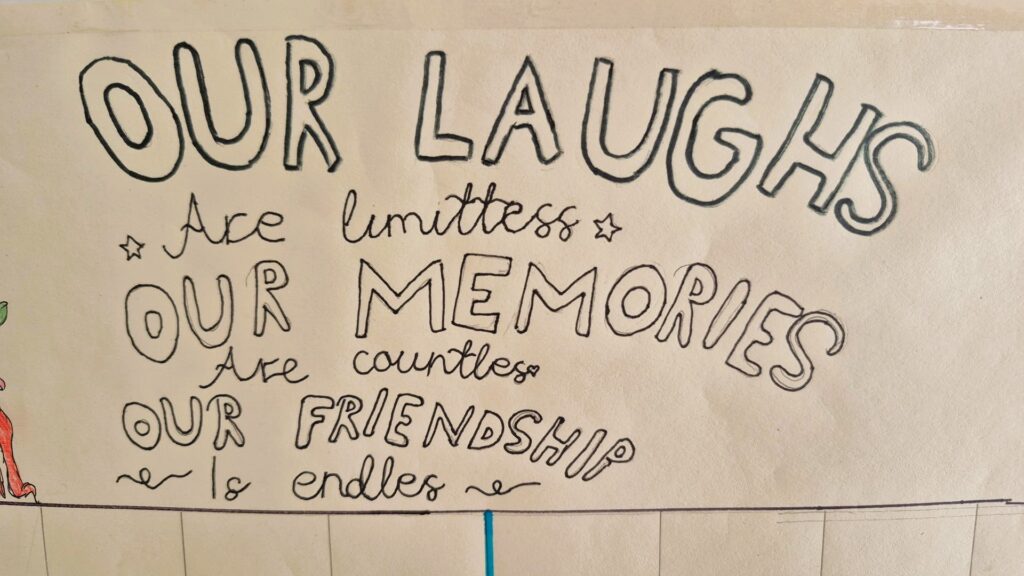 OUR LAUGHS
Are limittess
OUR MEMORIES
Are countles
OUR FRIENDSHIP
Is endles